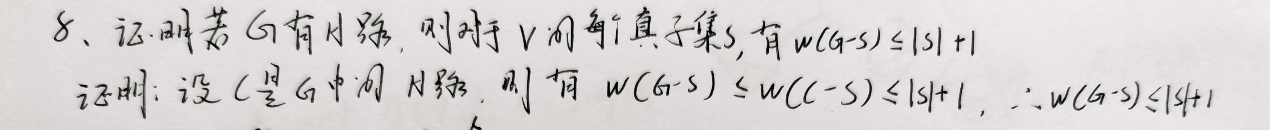 8、证明若G有H路,则对于V的每个真子集S,有w(G-S)≤|S|+1
证明:设C是G中的H路,则有 w(G-S)≤w(C-S)≤|S|+1,∴w(G-S)≤|S|+1